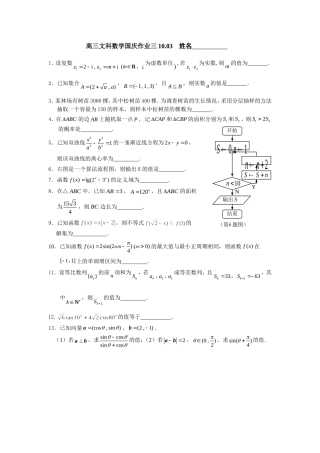 高三文科数学国庆作业三 10.03 姓名
1．设复数 z₁=2-i，z₂=m+i（m∈R，i 为虚数单位），若 z₁·z₂ 为实数，则 m 的值为 ．
2．已知集合 A={2+√a，a}，B={-1，1，3}，且 A⊆B，则实数a的值是 ．
3．某林场有树苗3000棵，其中松树苗400棵．为调查树苗的生长情况，采用分层抽样的方法
抽取一个容量为150的样本，则样本中松树苗的棵数为 ．
4．在△ABC的边AB上随机取一点P，记△ACP和△BCP的面积分别为S₁和S₂，则S₁>2S₂
的概率是 ．
5．已知双曲线 x²/a²-y²/b²=1的一条渐近线方程为2x-y=0，
则该双曲线的离心率为 ．
6．右图是一个算法流程图，则输出S的值是 ．
7．函数 f(x)=lg(2ˣ-3ˣ) 的定义域为 ．
8．在△ABC中，已知AB=3，A=120°，且△ABC的面积
为 15√3/4，则BC边长为 ．
9．已知函数 f(x)=x|x-2|，则不等式 f(√2-x)≤f(1) 的
解集为 ．
开始
n<10
Y
N
S←S+n
输出S
结束
（第6题图）
10．已知函数 f(x)=2sin(2ωx-π/4)(ω>0) 的最大值与最小正周期相同，则函数 f(x) 在
[-1,1] 上的单调增区间为 ．
11．设等比数列 {aₙ} 的前 n 项和为 Sₙ，若 a₄，a₃，a₅ 成等差数列，且 Sₖ=33，Sₖ₊₁=-63，其
中 k∈N*，则 Sₖ₊₂ 的值为 ．
12．√6 tan10°+4√2 cos80° 的值等于 ．
13．已知向量 a=(cosθ,sinθ)，b=(2,-1)．
（1）若 a⊥b，求 (sinθ-cosθ)/(sinθ+cosθ) 的值；（2）若 |a-b|=2，θ∈(0,π/2)，求 sin(θ+π/4) 的值．